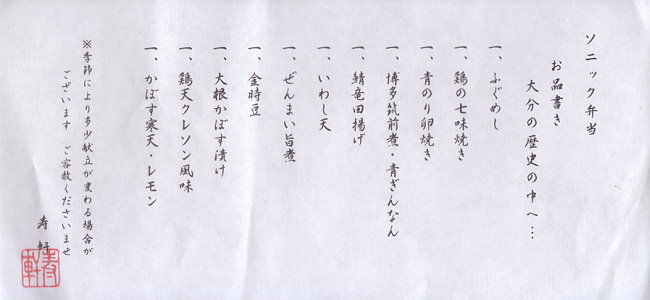 ソニック弁当
お品書き
大分の歴史の中へ…
一、ふぐめし
一、鶏の七味焼き
一、青のり卵焼き
一、博多筑前煮・青ぎんなん
一、鯖竜田揚げ
一、いわし天
一、ぜんまい旨煮
一、金時豆
一、大根かぼす漬け
一、鶏天クレソン風味
一、かぼす寒天・レモン
※季節により多少献立が変わる場合が
ございます ご容赦くださいませ
寿軒
寿軒